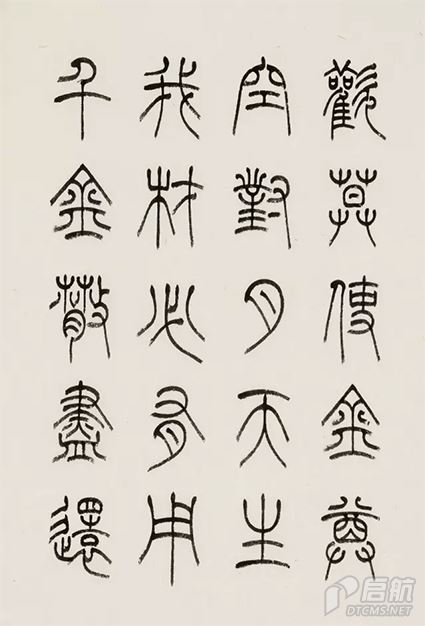 歡莫使金尊
空對月天生
我材必有用
千金散盡還
启航
DTCMS.NET